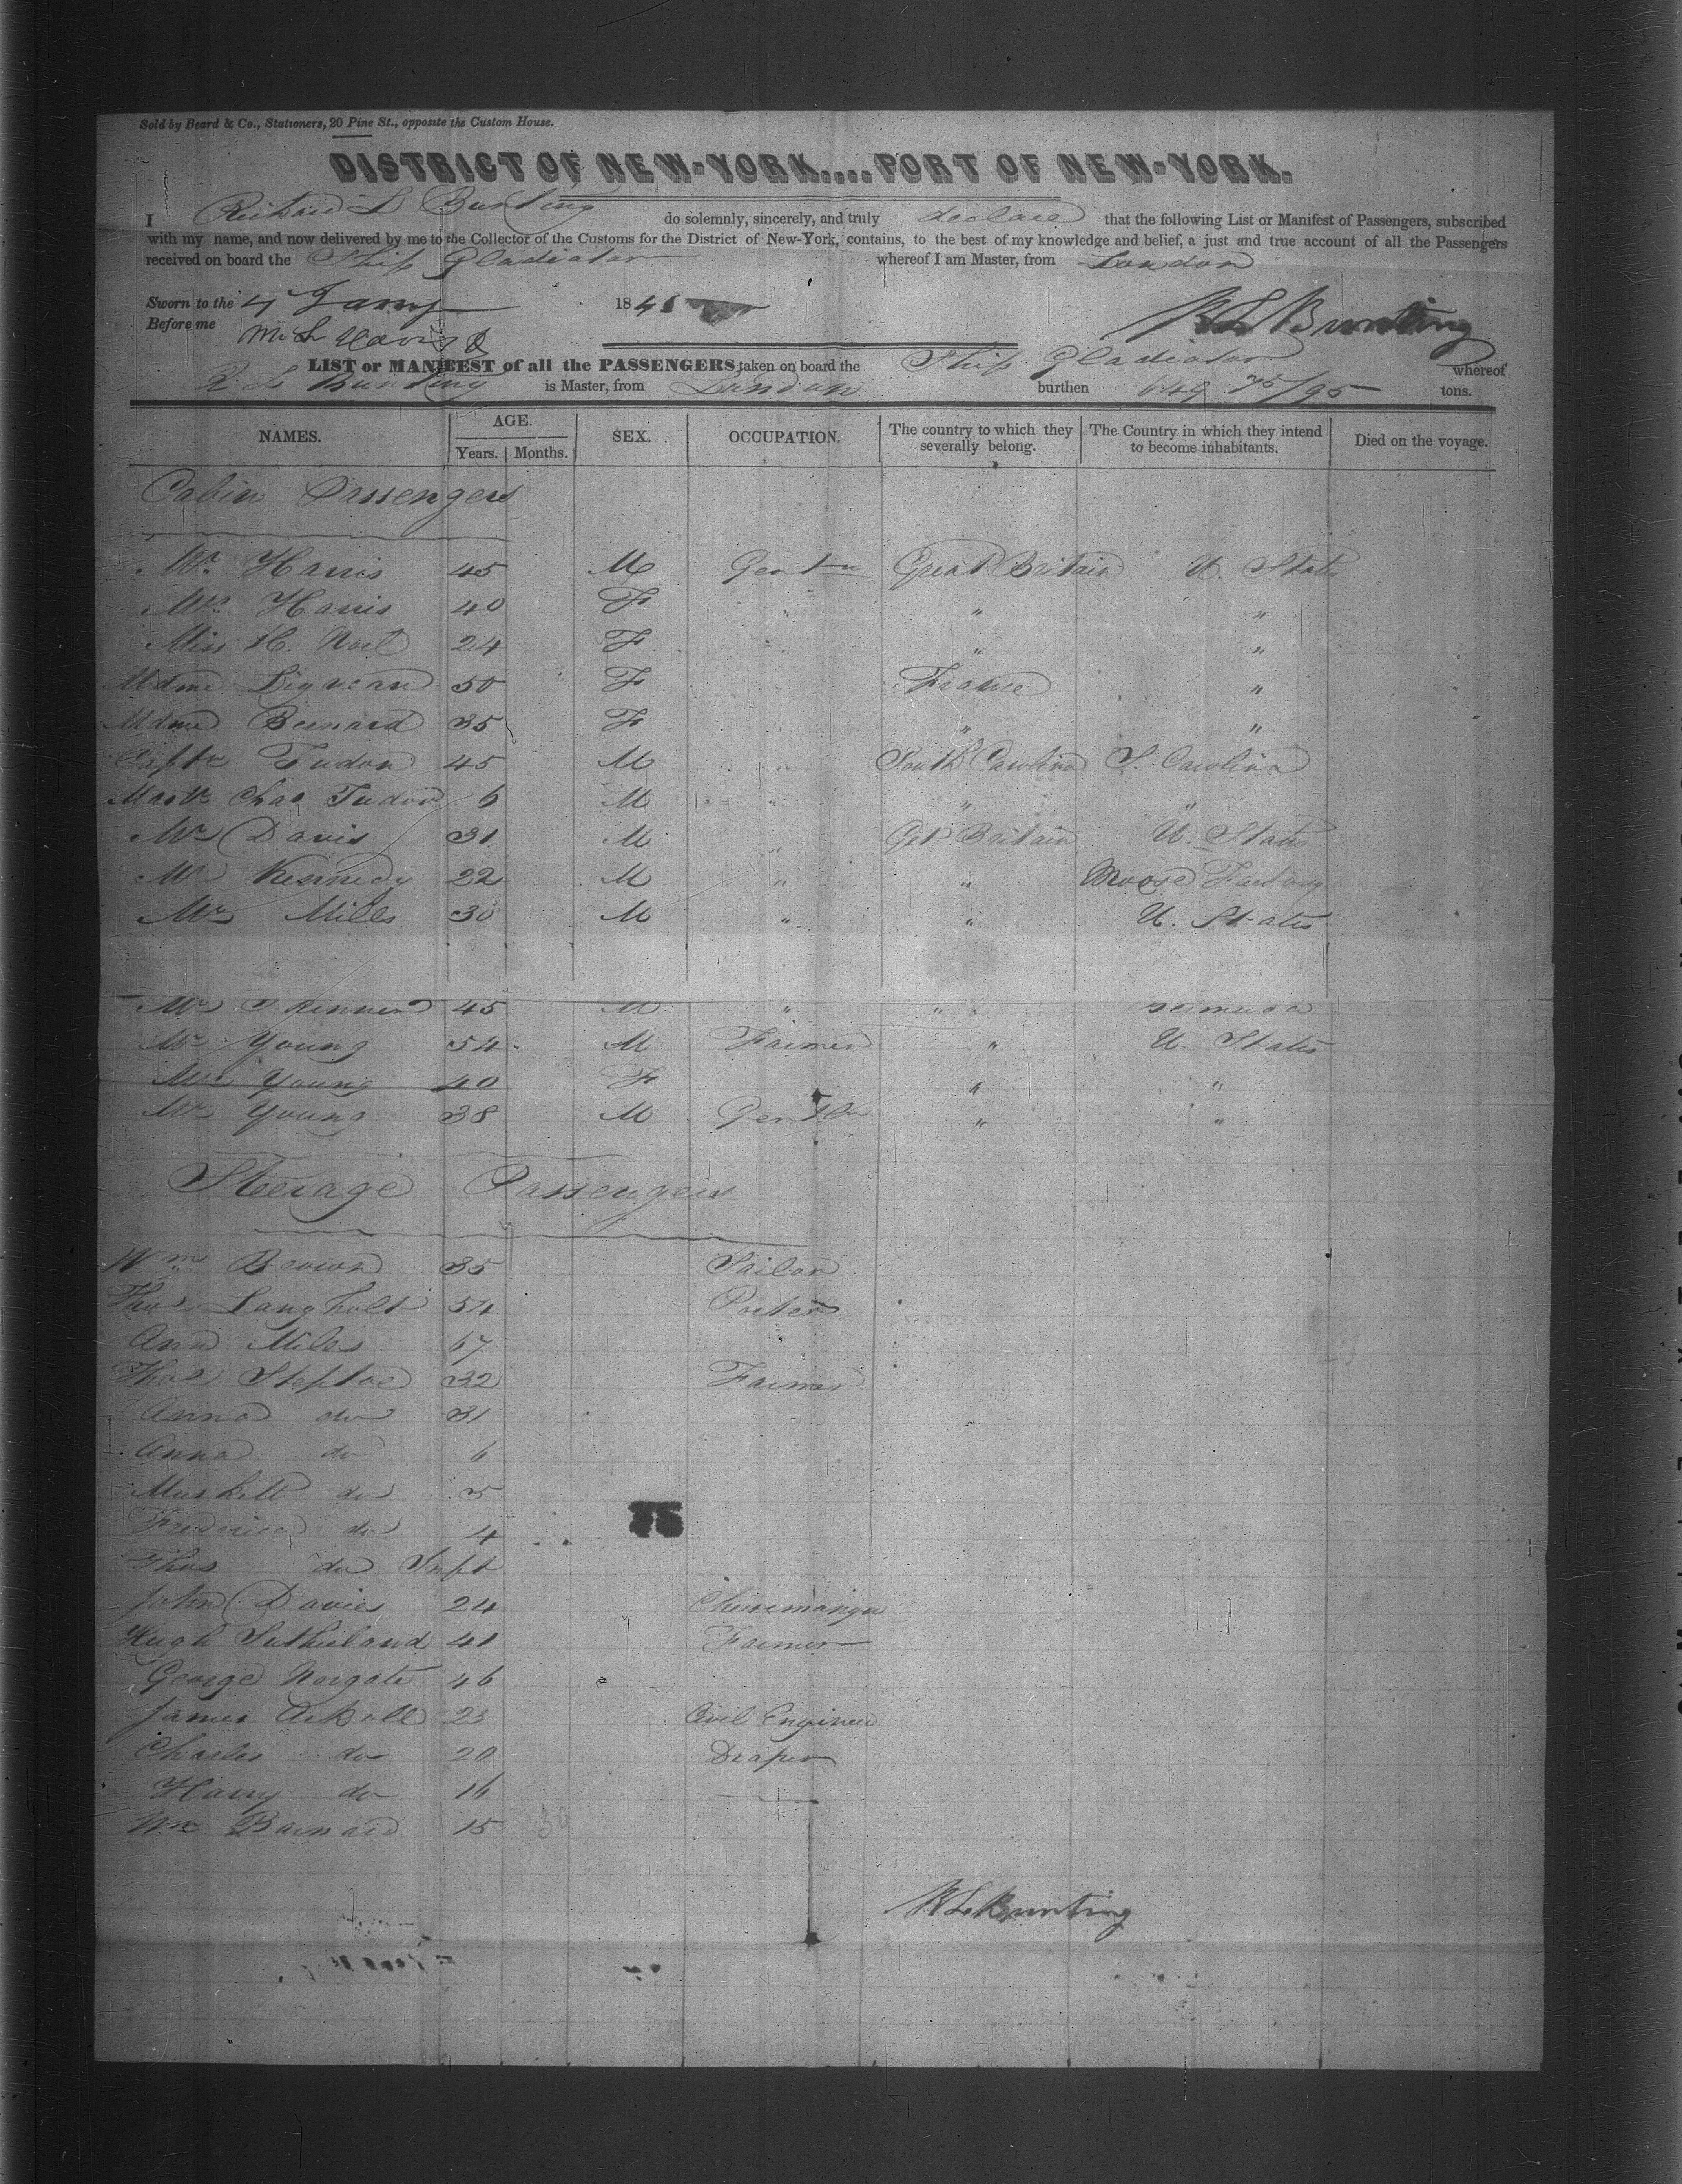 Sold by Beard & Co., Stationers, 20 Pine St., opposite the Custom House.
DISTRICT OF NEW-YORK....PORT OF NEW-YORK.
I Richard L Bunting do solemnly, sincerely, and truly declare that the following List or Manifest of Passengers, subscribed
with my name, and now delivered by me to the Collector of the Customs for the District of New-York, contains, to the best of my knowledge and belief, a just and true account of all the Passengers
received on board the Ship Gladiator whereof I am Master, from London
Sworn to the 7 Jany 1846
Before me
R L Bunting
LIST or MANIFEST of all the PASSENGERS taken on board the Ship Gladiator whereof
R. L Bunting is Master, from London burthen 649 75/95 tons.
NAMES. AGE. Years. Months. SEX. OCCUPATION. The country to which they severally belong. The Country in which they intend to become inhabitants. Died on the voyage.
Cabin Passengers
Mr. Harris 45 M Gentn Great Britain U. States
Mrs Harris 40 F " " "
Miss H. Noel 24 F " " "
Mdme 50 F " France "
Mdme Bernard 35 F " "
Captn Tudor 45 M " South Carolina S. Carolina
Mastr Chas Tudor 6 M " " "
Mr Davis 31 M " Gt Britain U. States
Mr Kennedy 22 M " " Moose Factory
Mr Mills 30 M " " U. States
Mr Skinner 45 M " " Bermuda
Mr Young 54 M Farmer " U. States
Mrs Young 40 F " "
Mr Young 38 M Gentln " "
Steerage Passengers
Wm Brown 35 Sailor
Thos Langholt 54 Porter
Ann Miles 67
Thos Steptoe 32 Farmer
Anna do 31
Anna do 6
Muskett do 5
Frederica do 4
75
Thos do Inft
John Davies 24 Cheesemonger
Hugh Sutherland 41 Farmer
George Norgate 46
James Arkoll 23 Civil Engineer
Charles do 20 Draper
Harry do 16
Wm Barnard 15 30
R L Bunting